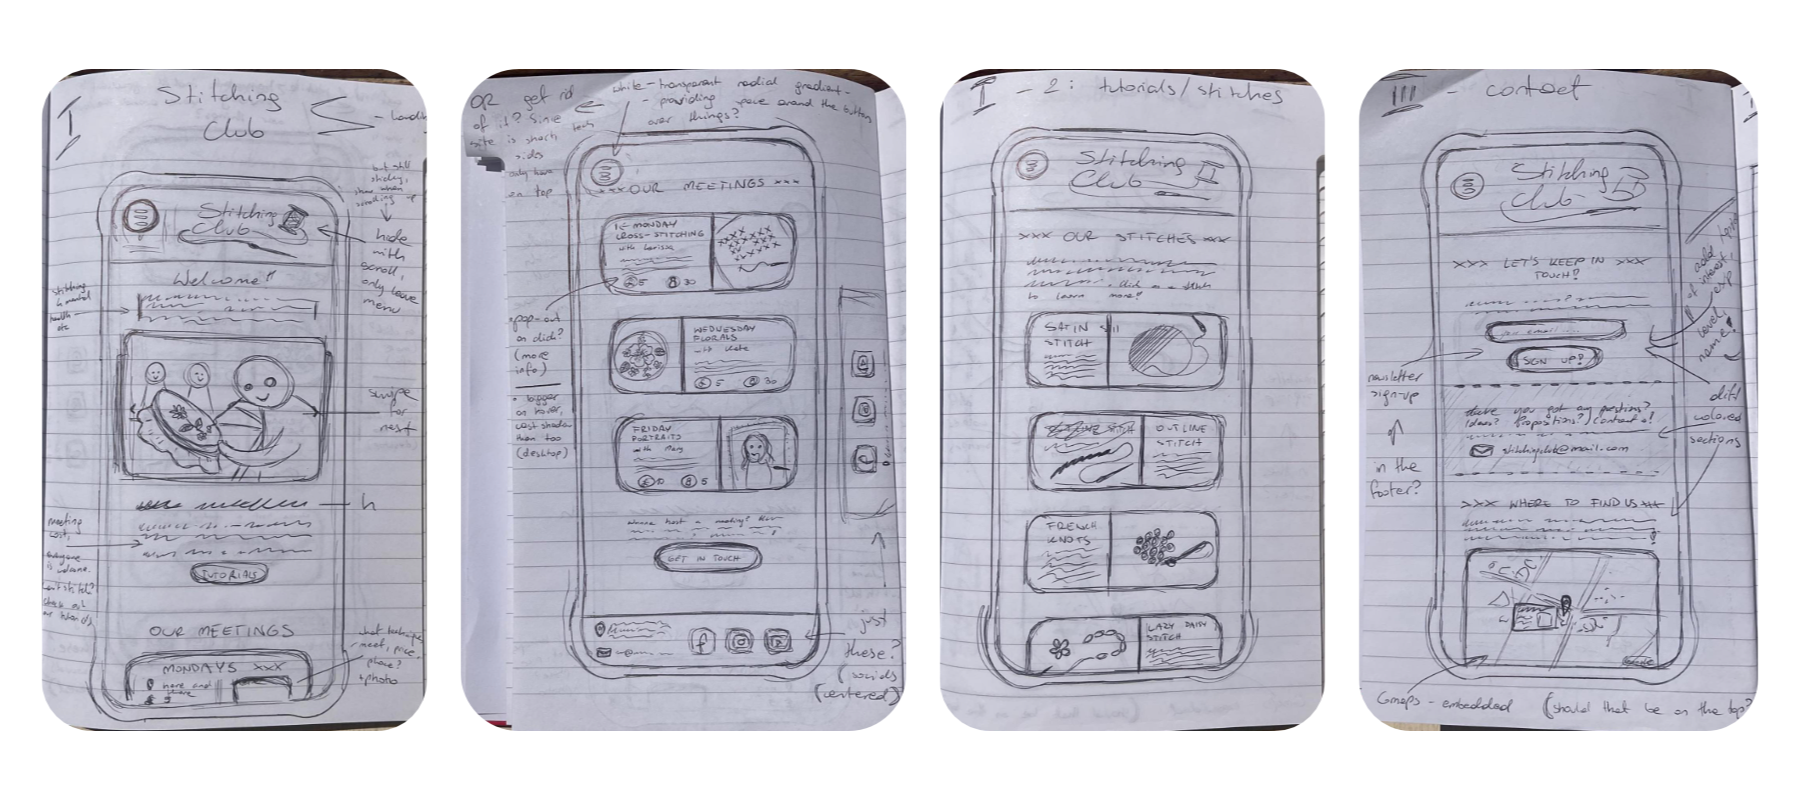 I
Stitching
Club
but still
sticky,
show when
scrolling up
Stitching
Club
hide
with
scroll,
only leave
menu
Welcome!!
stitching
& mental
health
etc
swipe
for
next
h
meeting
cost,
everyone
is welcome.
can't stitch?
check out
our tutorials
TUTORIALS
OUR MEETINGS
what technique,
meet, price,
place?
+photo
MONDAYS xxx
here and
there
5
OR get rid
of it? Since
site is short
only have
on top
white-transparent radial gradient-
- providing space around the button
over things?
xxx OUR MEETINGS xxx
MONDAY
CROSS-STITCHING
with Larissa
£5
30
WEDNESDAY
FLORALS
with Kate
£5
30
FRIDAY
PORTRAITS
with Mary
pop-out
on click?
(more
info)
• bigger
on hover,
cast shadow
then too
(desktop)
wanna host a meeting?
GET IN TOUCH
f
just
these?
(socials
centered)
I - 2: tutorials/stitches
Stitching
Club
xxx OUR STITCHES xxx
click on a stitch
to learn more!
SATIN
STITCH
OUTLINE
STITCH
FRENCH
KNOTS
LAZY DAISY
STITCH
III - contact
Stitching
Club
xxx LET'S KEEP IN xxx
TOUCH!
add
of interest,
exp
level,
name?
SIGN UP!
newsletter
sign-up
in the
footer?
diff
colored
sections
Have you got any questions?
Ideas? Propositions? Contact us!
stitchingclub@mail.com
>xx WHERE TO FIND US xxx
Gmaps - embedded (should that be on the top?